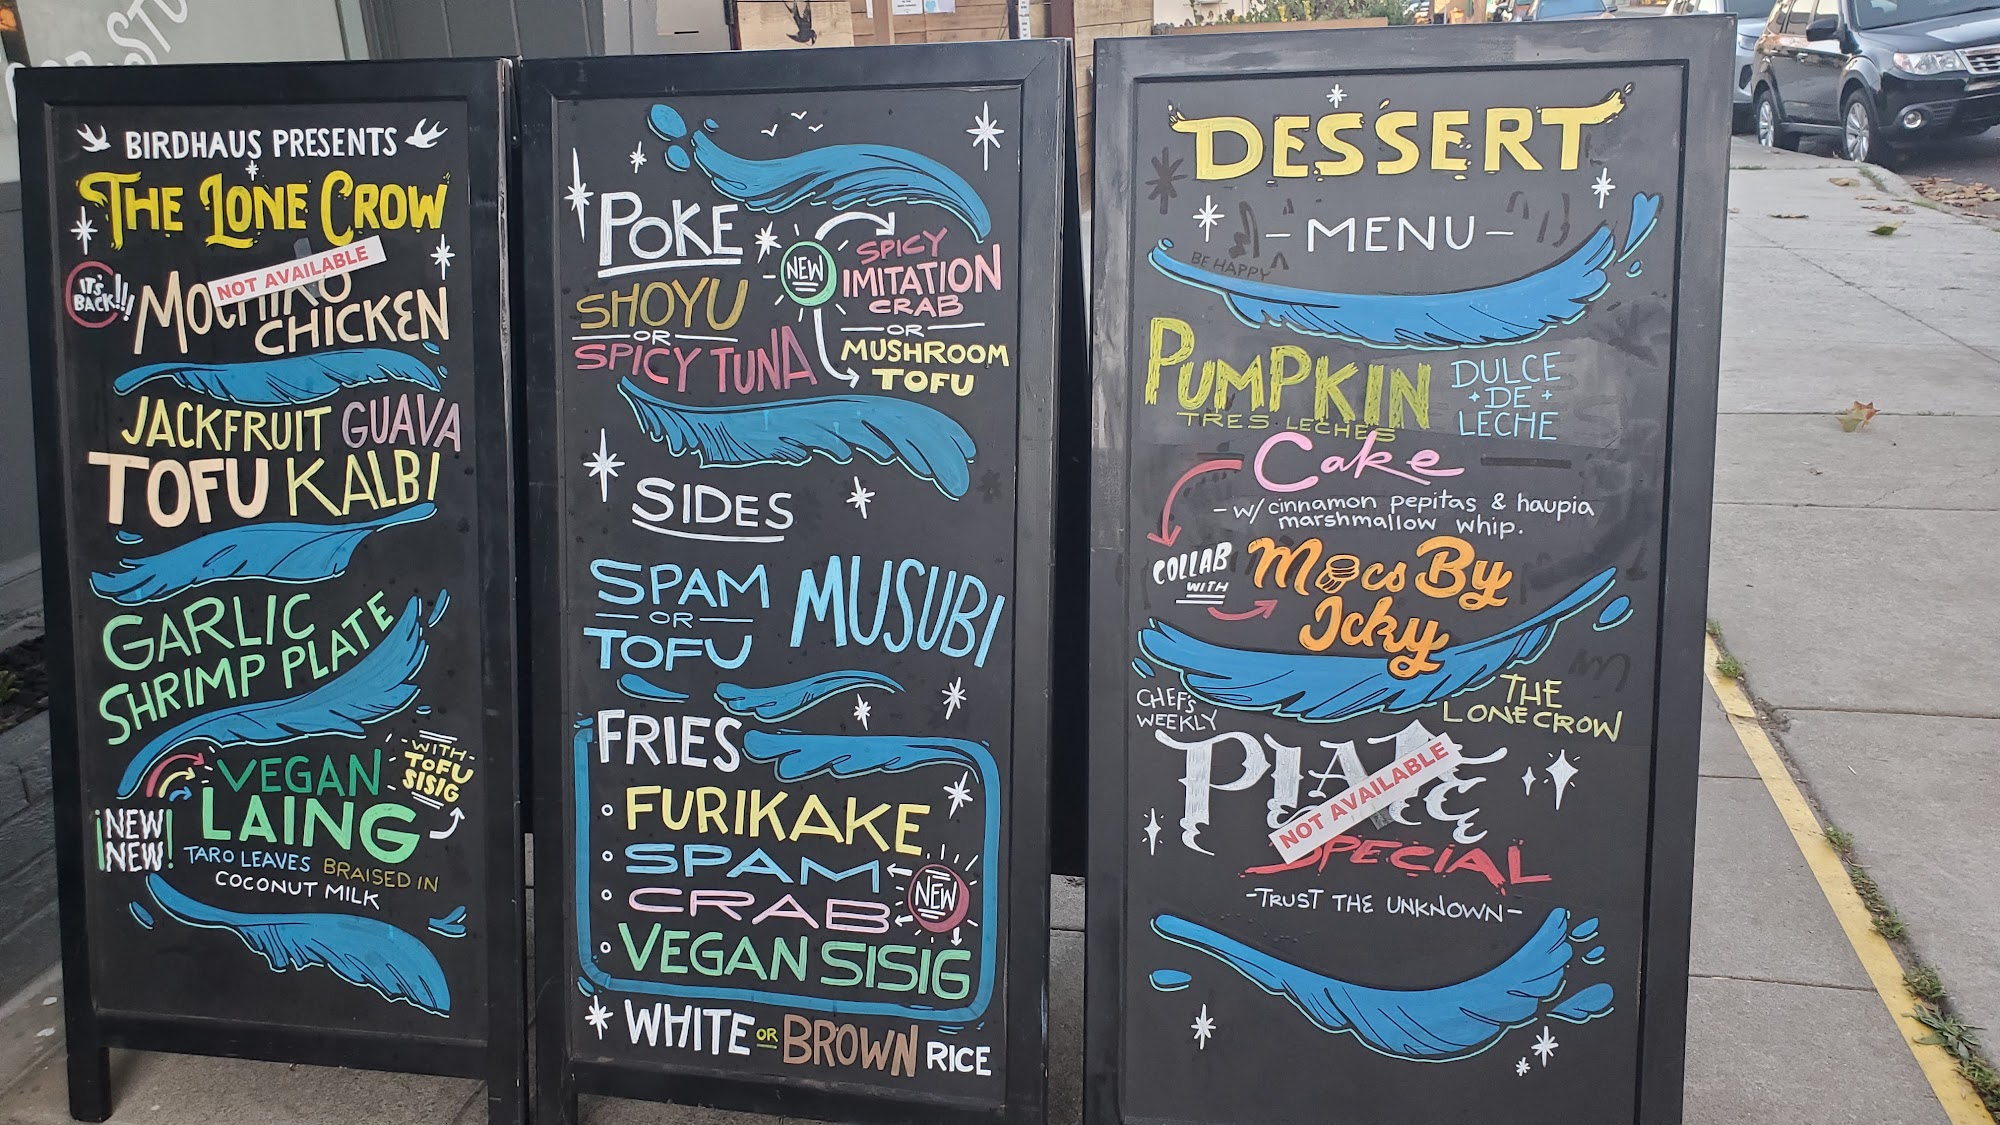 BIRDHAUS PRESENTS
THE LONE CROW
NOT AVAILABLE
IT'S
BACK!!!
MOCHIKO
CHICKEN
JACKFRUIT GUAVA
TOFU KALBI
GARLIC
SHRIMP PLATE
¡NEW
NEW!
VEGAN
LAING
WITH
TOFU
SISIG
TARO LEAVES BRAISED IN
COCONUT MILK
POKE
SHOYU
OR
SPICY TUNA
NEW
SPICY
IMITATION
CRAB
OR
MUSHROOM
TOFU
SIDES
SPAM
OR
TOFU
MUSUBI
FRIES
FURIKAKE
SPAM
CRAB
NEW
VEGAN SISIG
WHITE OR BROWN RICE
DESSERT
- MENU -
BE HAPPY
PUMPKIN
TRES LECHES
DULCE
DE
LECHE
Cake
- w/ cinnamon pepitas & haupia
marshmallow whip.
COLLAB
WITH
Mocs By
Icky
CHEF'S
WEEKLY
THE
LONE CROW
PLATE
NOT AVAILABLE
SPECIAL
- TRUST THE UNKNOWN -